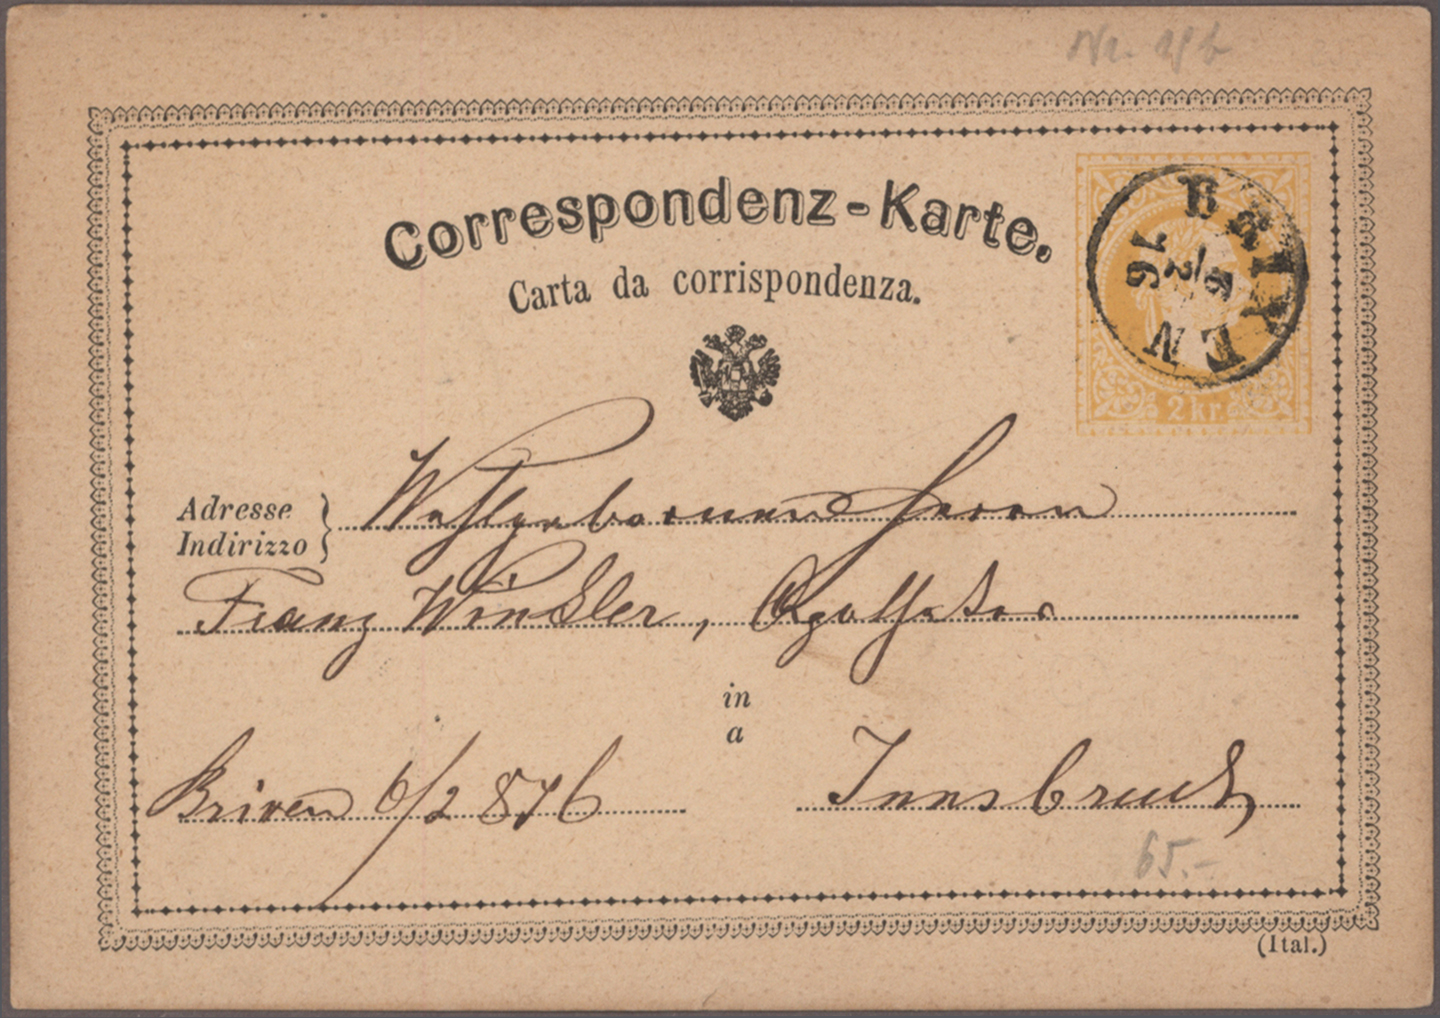 Nr. 19 b
Correspondenz-Karte.
Carta da corrispondenza.
BRIXEN
6/2
76
2 kr.
Adresse
Indirizzo
Wohlgebornen Herrn
Franz Winkler,
in
a
Brixen 6/2 876
Innsbruck
65.-
(Ital.)